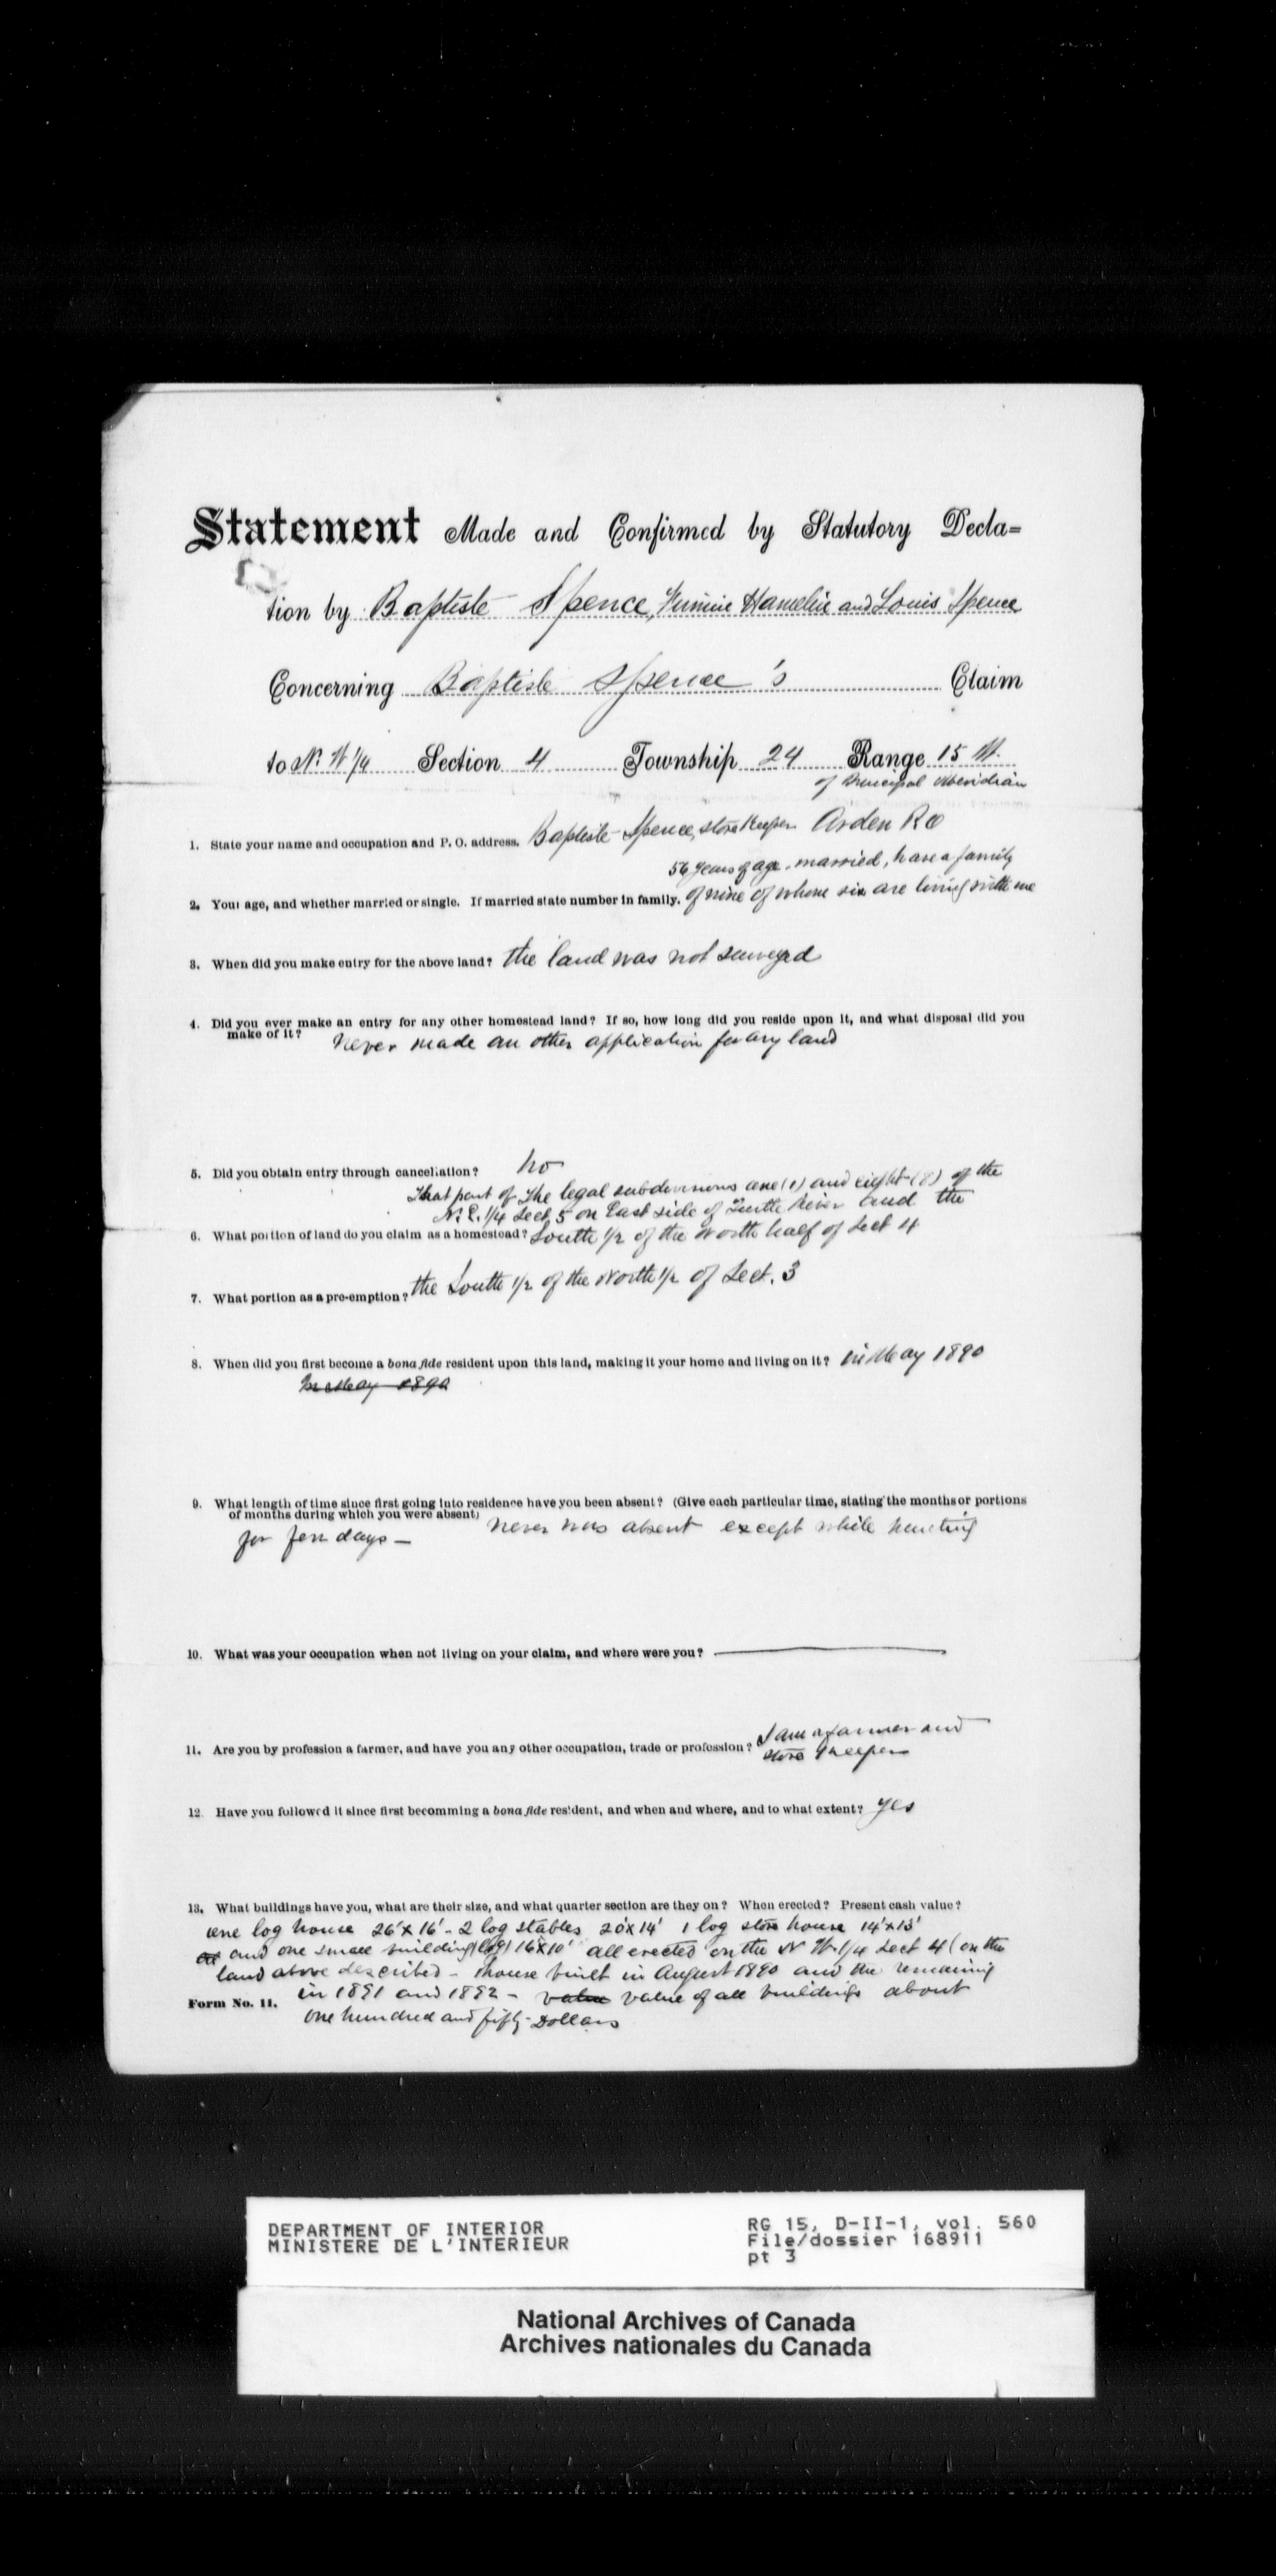 Statement Made and Confirmed by Statutory Decla=
tion by Baptiste Spence, Hamelin and Louis Spence
Concerning Baptiste Spence's Claim
to N. W 1/4 Section 4 Township 24 Range 15 W.
of Principal Meridian
1. State your name and occupation and P. O. address. Baptiste Spence, store Keeper Arden P.O
56 years of age. married, have a family
2. Your age, and whether married or single. If married state number in family. of nine of whom six are living with me
3. When did you make entry for the above land? the land was not surveyed
4. Did you ever make an entry for any other homestead land? If so, how long did you reside upon it, and what disposal did you
make of it? Never made an other application for any land
5. Did you obtain entry through cancellation? No
That part of the legal subdivisions one (1) and eight (8) of the
N. E. 1/4 Sect. 5 on East side of Turtle River and the
6. What portion of land do you claim as a homestead? South 1/2 of the North half of Sect 4
7. What portion as a pre-emption? the South 1/2 of the North 1/2 of Sect. 3
8. When did you first become a bona fide resident upon this land, making it your home and living on it? in May 1890
In May 1890
9. What length of time since first going into residence have you been absent? (Give each particular time, stating the months or portions
of months during which you were absent) never was absent except while hunting
for few days —
10. What was your occupation when not living on your claim, and where were you? ————
11. Are you by profession a farmer, and have you any other occupation, trade or profession? I am a farmer and
store Keeper
12. Have you followed it since first becomming a bona fide resident, and when and where, and to what extent? yes
13. What buildings have you, what are their size, and what quarter section are they on? When erected? Present cash value?
one log house 26'x16' - 2 log stables 20'x14' 1 log store house 14'x13'
and one small building (log) 16'x10' all erected on the N W. 1/4 Sect 4 (on the
land above described - house built in August 1890 and the remaining
Form No. 11. in 1891 and 1892 - value value of all buildings about
one hundred and fifty Dollars
DEPARTMENT OF INTERIOR
MINISTERE DE L'INTERIEUR
RG 15, D-II-1, vol. 560
File/dossier 168911
pt 3
National Archives of Canada
Archives nationales du Canada